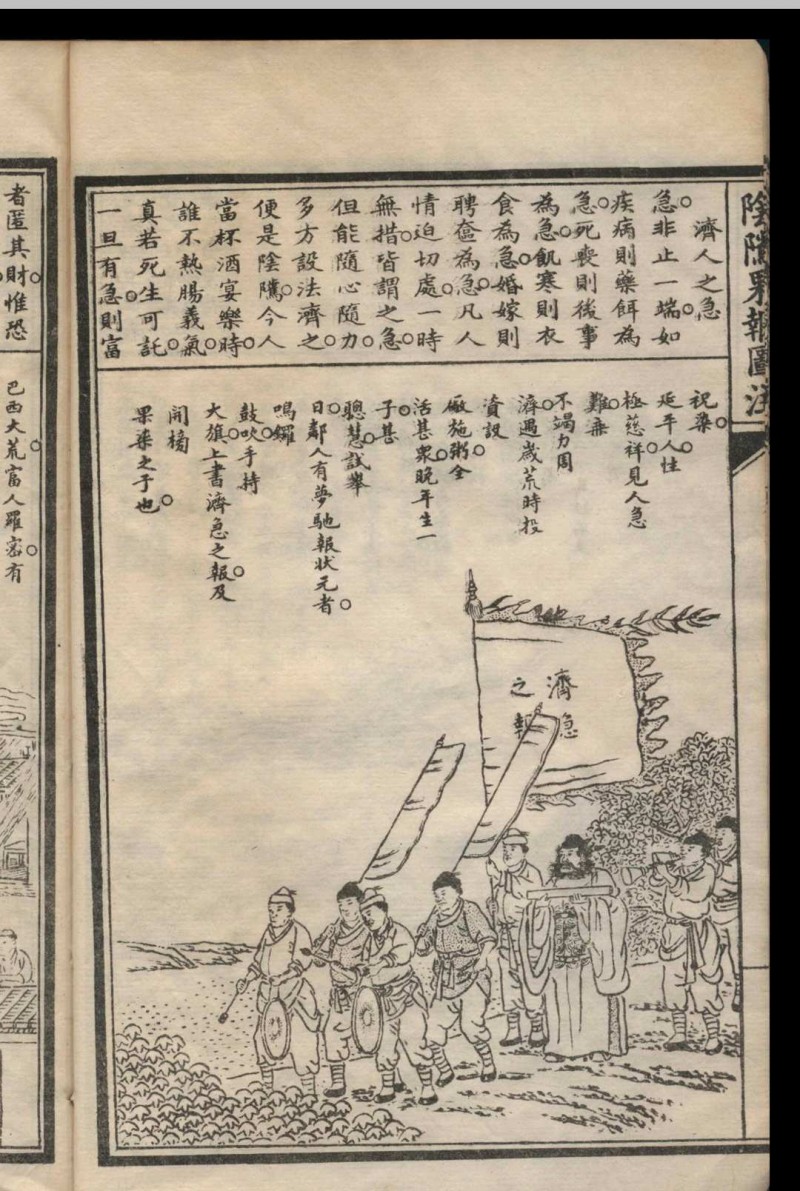 陰隲果報圖注
濟人之急
急。非止一端。如
疾病則藥餌為
急。死喪則後事
為急。飢寒則衣
食為急。婚嫁則
聘奩為急。凡人
情迫切處。一時
無措。皆謂之急。
但能隨心隨力。
多方設法濟之。
便是陰隲。今人
當杯酒宴樂時。
誰不熱腸義氣。
真若死生可託。
一旦有急。則富
祝染。
延平人。性
極慈祥。見人急
難。無
不竭力周
濟。遇歲荒時。投
資設
廠施粥。全
活甚眾。晚年生一
子。甚
聰慧。試舉
日。鄰人有夢馳報狀元者。
鳴鑼
鼓吹。手持
大旗。上書濟急之報。及
開榜
果染之子也。
濟急
之報
者匿其財。惟恐
巴西大荒。富人羅密。有